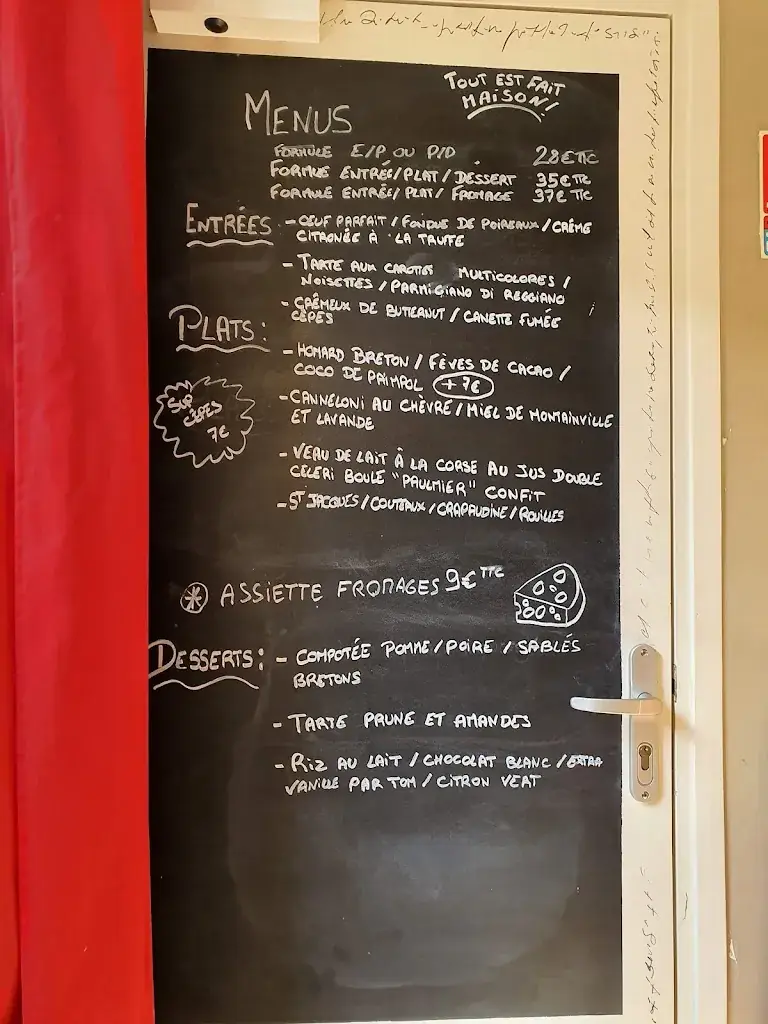 TOUT EST FAIT
MAISON!
MENUS
FORMULE E/P OU P/D 28€ TTC
FORMULE ENTRÉE/PLAT/DESSERT 35€ TTC
FORMULE ENTRÉE/PLAT/FROMAGE 37€ TTC
ENTRÉES - OEUF PARFAIT / FONDUE DE POIREAUX / CRÈME
CITRONÉE À LA TRUFFE
- TARTE AUX CAROTTES MULTICOLORES /
NOISETTES / PARMIGIANO DI REGGIANO
- CRÉMEUX DE BUTTERNUT / CANETTE FUMÉE
CÈPES
PLATS:
- HOMARD BRETON / FÈVES DE CACAO /
COCO DE PAIMPOL +7€
SUP
CÈPES
7€
- CANNELONI AU CHÈVRE / MIEL DE MONTAINVILLE
ET LAVANDE
- VEAU DE LAIT À LA CORSE AU JUS DOUBLE
CELERI BOULE "PAULMIER" CONFIT
- ST JACQUES / COUTEAUX / CRAPAUDINE / ROUILLES
* ASSIETTE FROMAGES 9€ TTC
DESSERTS: - COMPOTÉE POMME / POIRE / SABLÉS
BRETONS
- TARTE PRUNE ET AMANDES
- RIZ AU LAIT / CHOCOLAT BLANC / EXTRA
VANILLE PAR TOM / CITRON VERT